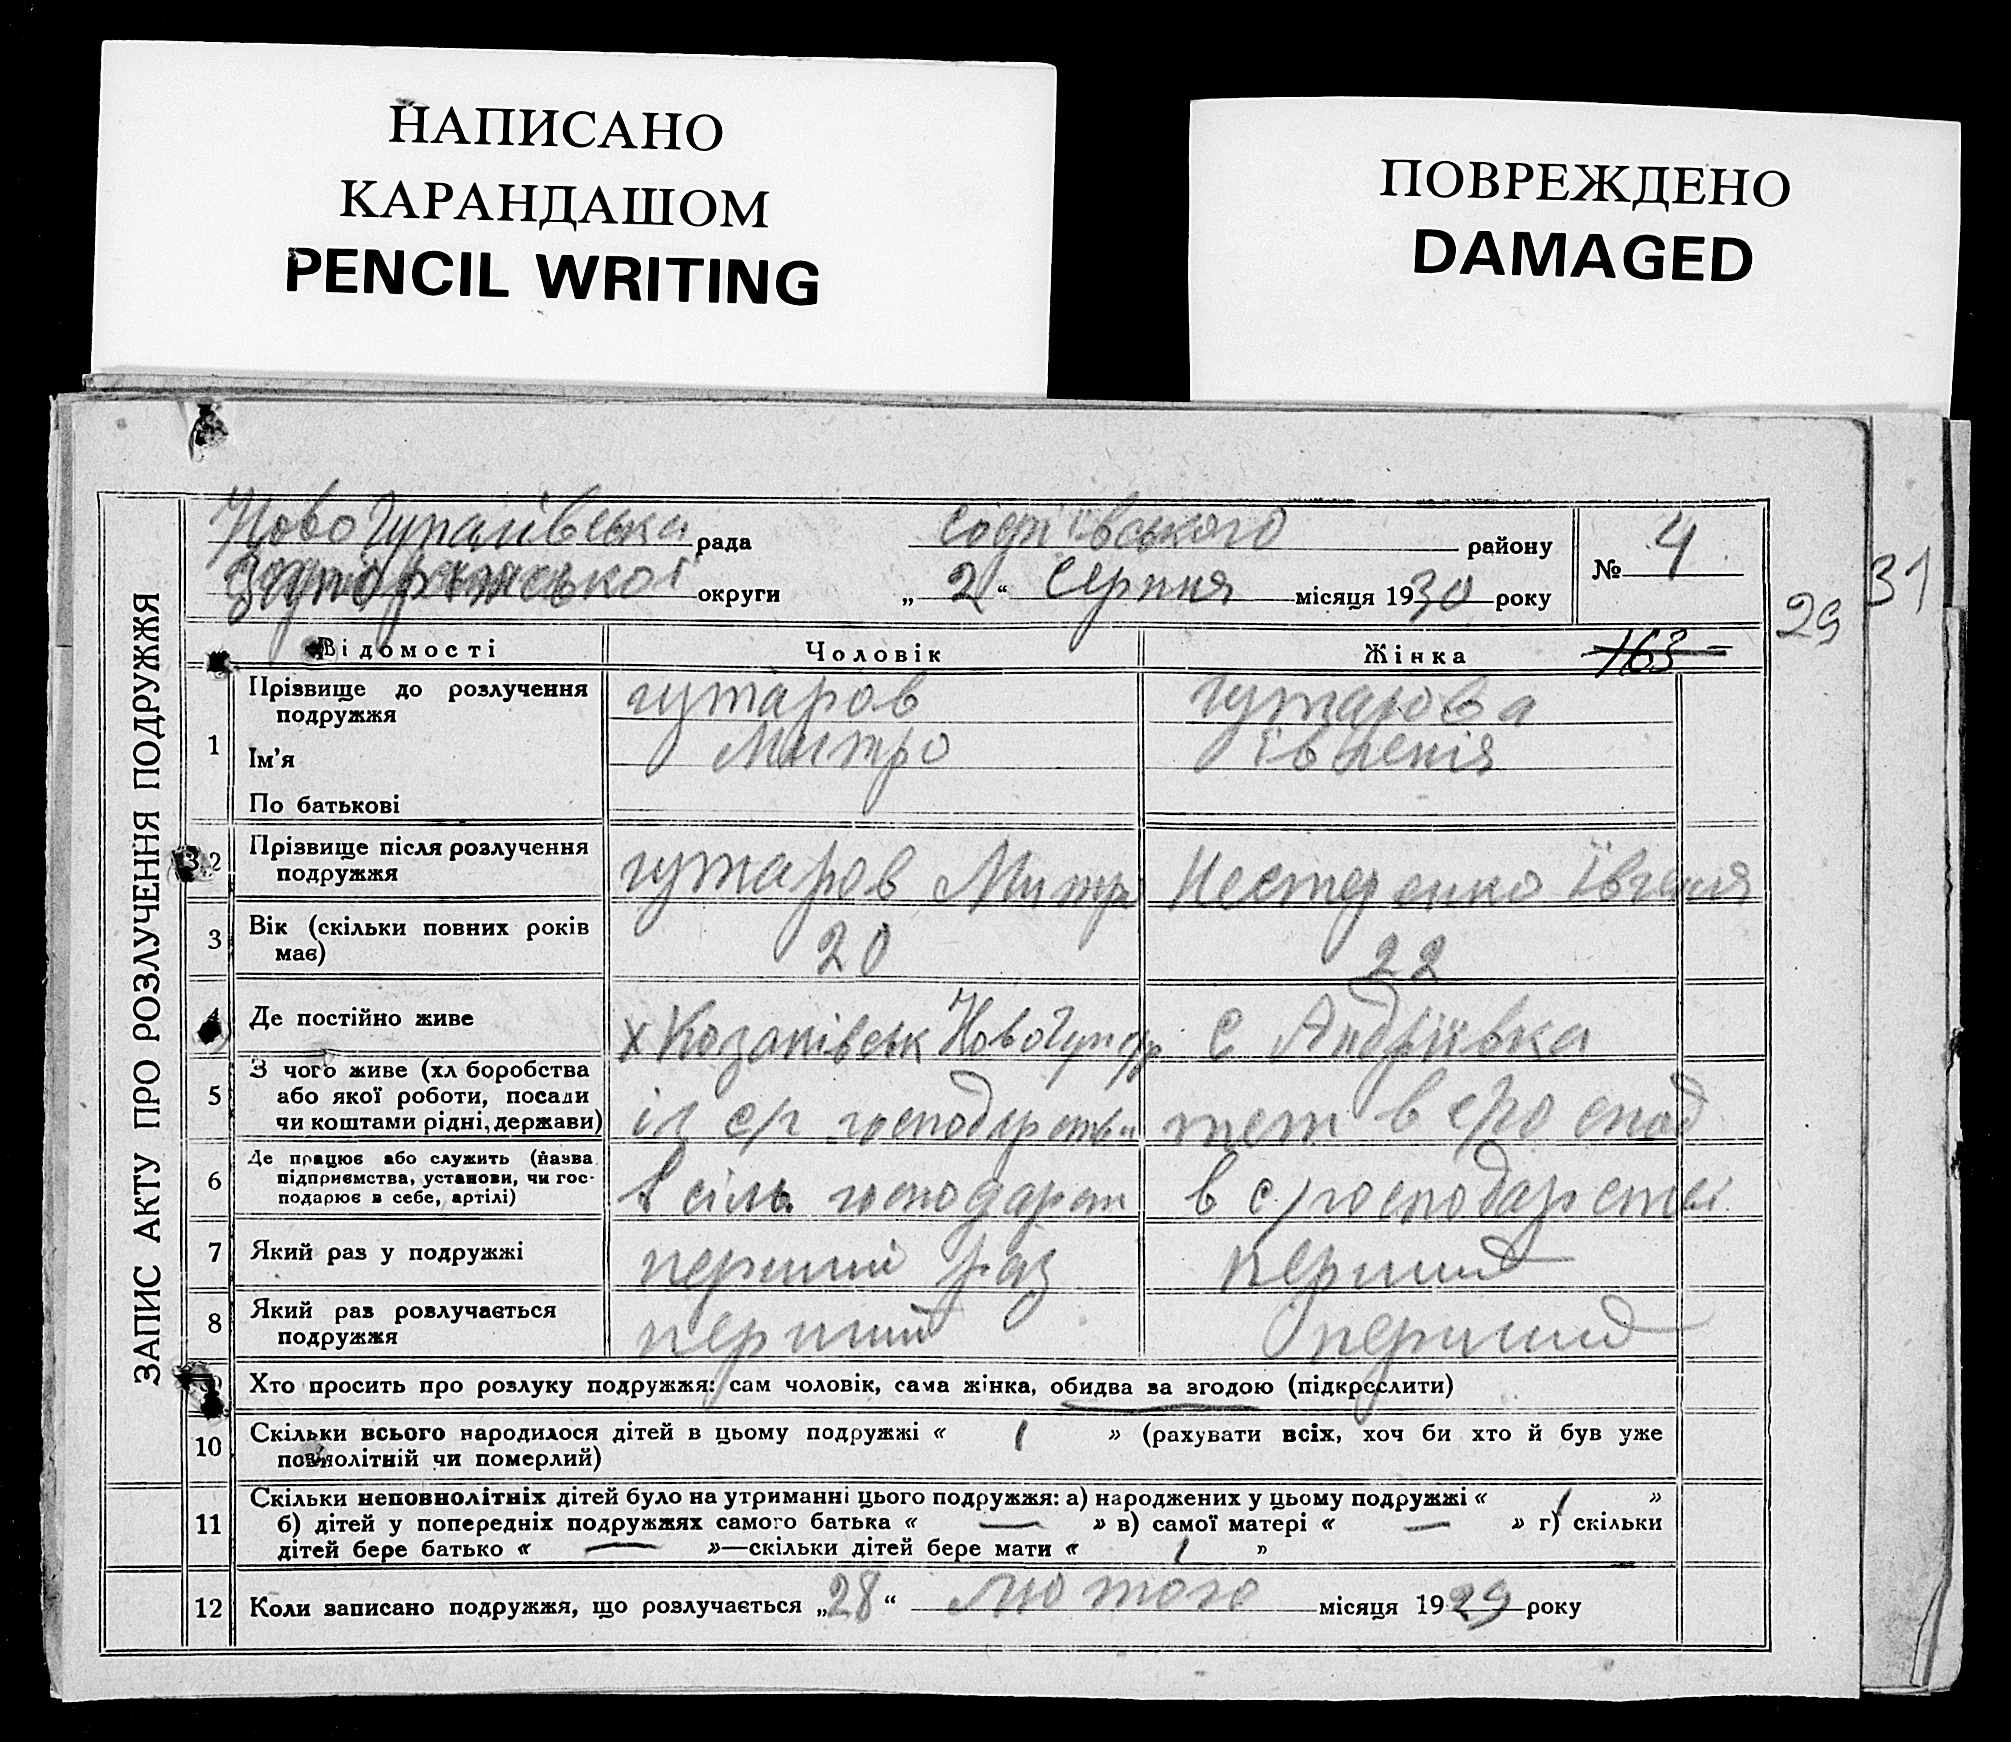 НАПИСАНО
КАРАНДАШОМ
PENCIL WRITING
ПОВРЕЖДЕНО
DAMAGED
НовоГупалівська рада Софіївського району № 4
Запоріжської округи „ 2 “ Серпня місяця 1930 року
31
29
Відомості Чоловік Жінка 163
ЗАПИС АКТУ ПРО РОЗЛУЧЕННЯ ПОДРУЖЖЯ
1 Прізвище до розлучення подружжя гужаров Гужарова
Ім'я Митро
По батькові
2 Прізвище після розлучення подружжя гужаров Митр Нестеренко Ївгенія
3 Вік (скільки повних років має) 20 22
4 Де постійно живе х НовоГупал С Андріївка
5 З чого живе (хліборобства
або якої роботи, посади
чи коштами рідні, держави) із с/г господарства теж в с/господ
6 Де працює або служить (назва
підприємства, установи, чи гос-
подарює в себе, артілі) В сіль господарст в с/господарстві
7 Який раз у подружжі перший раз перший
8 Який раз розлучається
подружжя перший перший
9 Хто просить про розлуку подружжя: сам чоловік, сама жінка, обидва за згодою (підкреслити)
10 Скільки всього народилося дітей в цьому подружжі « 1 » (рахувати всіх, хоч би хто й був уже
повнолітній чи померлий)
11 Скільки неповнолітніх дітей було на утриманні цього подружжя: а) народжених у цьому подружжі « 1 »
б) дітей у попередніх подружжях самого батька « — » в) самої матері « — » г) скільки
дітей бере батько « — »—скільки дітей бере мати « 1 »
12 Коли записано подружжя, що розлучається „28“ лютого місяця 1929 року